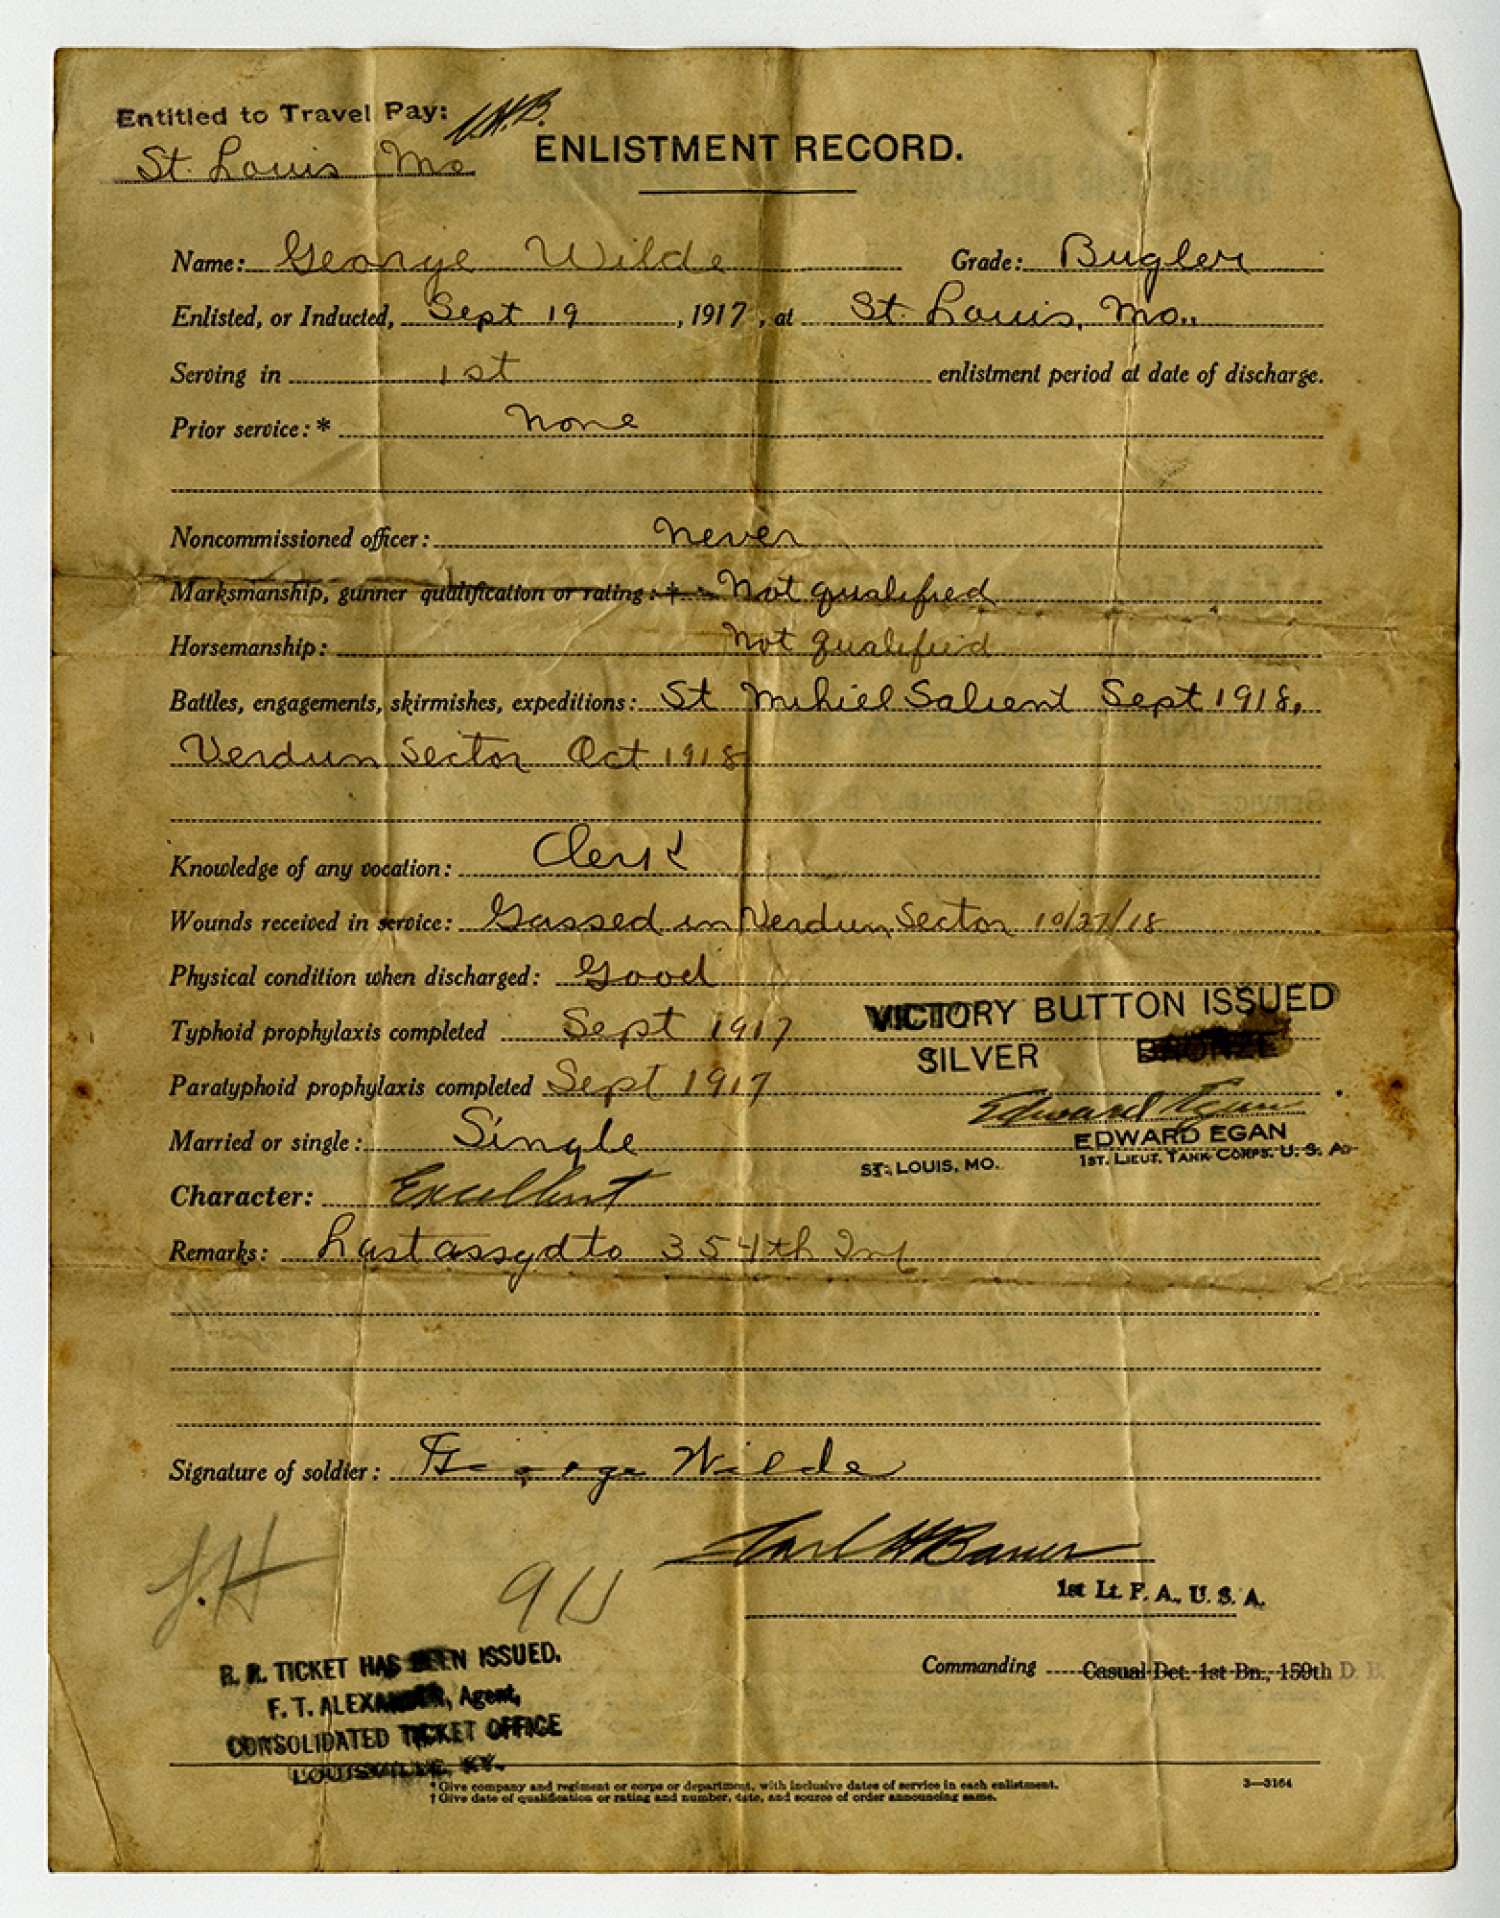 Entitled to Travel Pay:
St. Louis Mo.
ENLISTMENT RECORD.
Name: George Wilde Grade: Bugler
Enlisted, or Inducted, Sept 19, 1917, at St. Louis, Mo.,
Serving in 1st enlistment period at date of discharge.
Prior service:* None
Noncommissioned officer: Never
Marksmanship, gunner qualification or rating:† Not qualified
Horsemanship: Not qualified
Battles, engagements, skirmishes, expeditions: St Mihiel Salient Sept 1918,
Verdun Sector Oct 1918
Knowledge of any vocation: Clerk
Wounds received in service: Gassed in Verdun Sector 10/27/18
Physical condition when discharged: Good
VICTORY BUTTON ISSUED
Typhoid prophylaxis completed Sept 1917
SILVER BRONZE
Paratyphoid prophylaxis completed Sept 1917
Edward Egan
EDWARD EGAN
Married or single: Single
ST. LOUIS, MO. 1ST. LIEUT. TANK CORPS. U. S. A.
Character: Excellent
Remarks: Last assgd to 354th Inf
Signature of soldier: George Wilde
J.H
1st Lt. F. A., U. S. A.
R. R. TICKET HAS BEEN ISSUED.
F. T. ALEXANDER, Agent,
CONSOLIDATED TICKET OFFICE
LOUISVILLE, KY.
Commanding Casual Det. 1st Bn., 159th D. B.
* Give company and regiment or corps or department, with inclusive dates of service in each enlistment.
† Give date of qualification or rating and number, date, and source of order announcing same.
3—3164